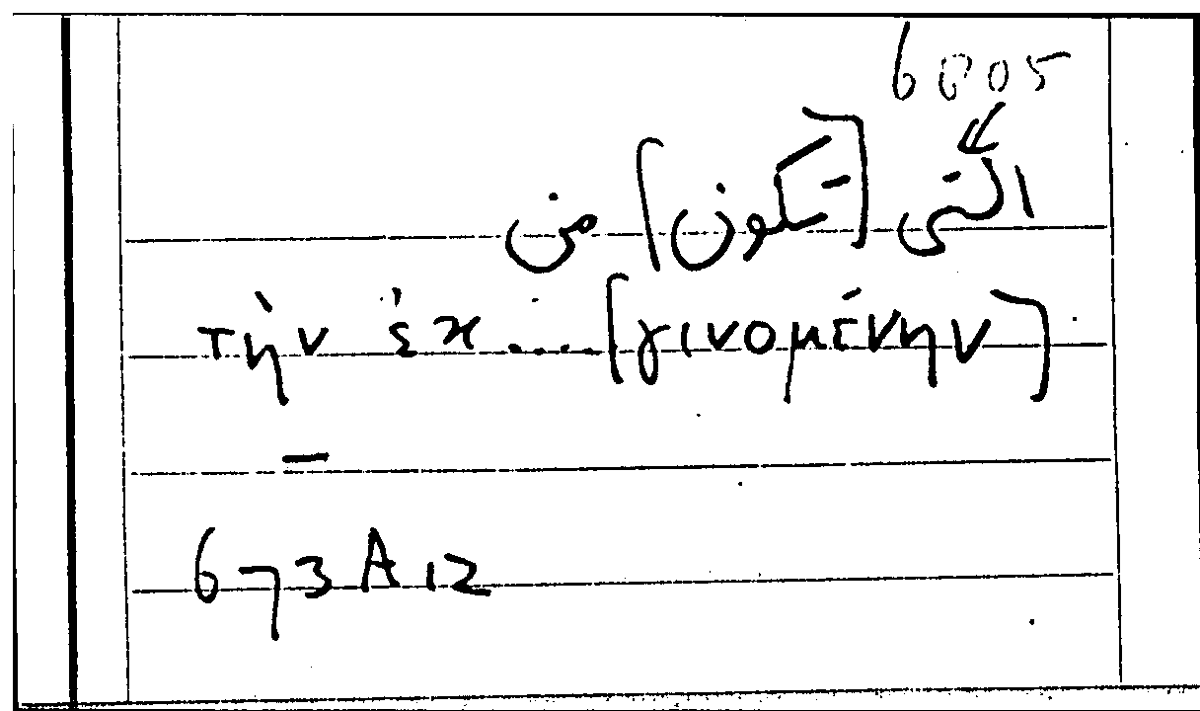 6005
التى [تكون] من
τὴν ἐκ..... [γινομένην]
673 A 12